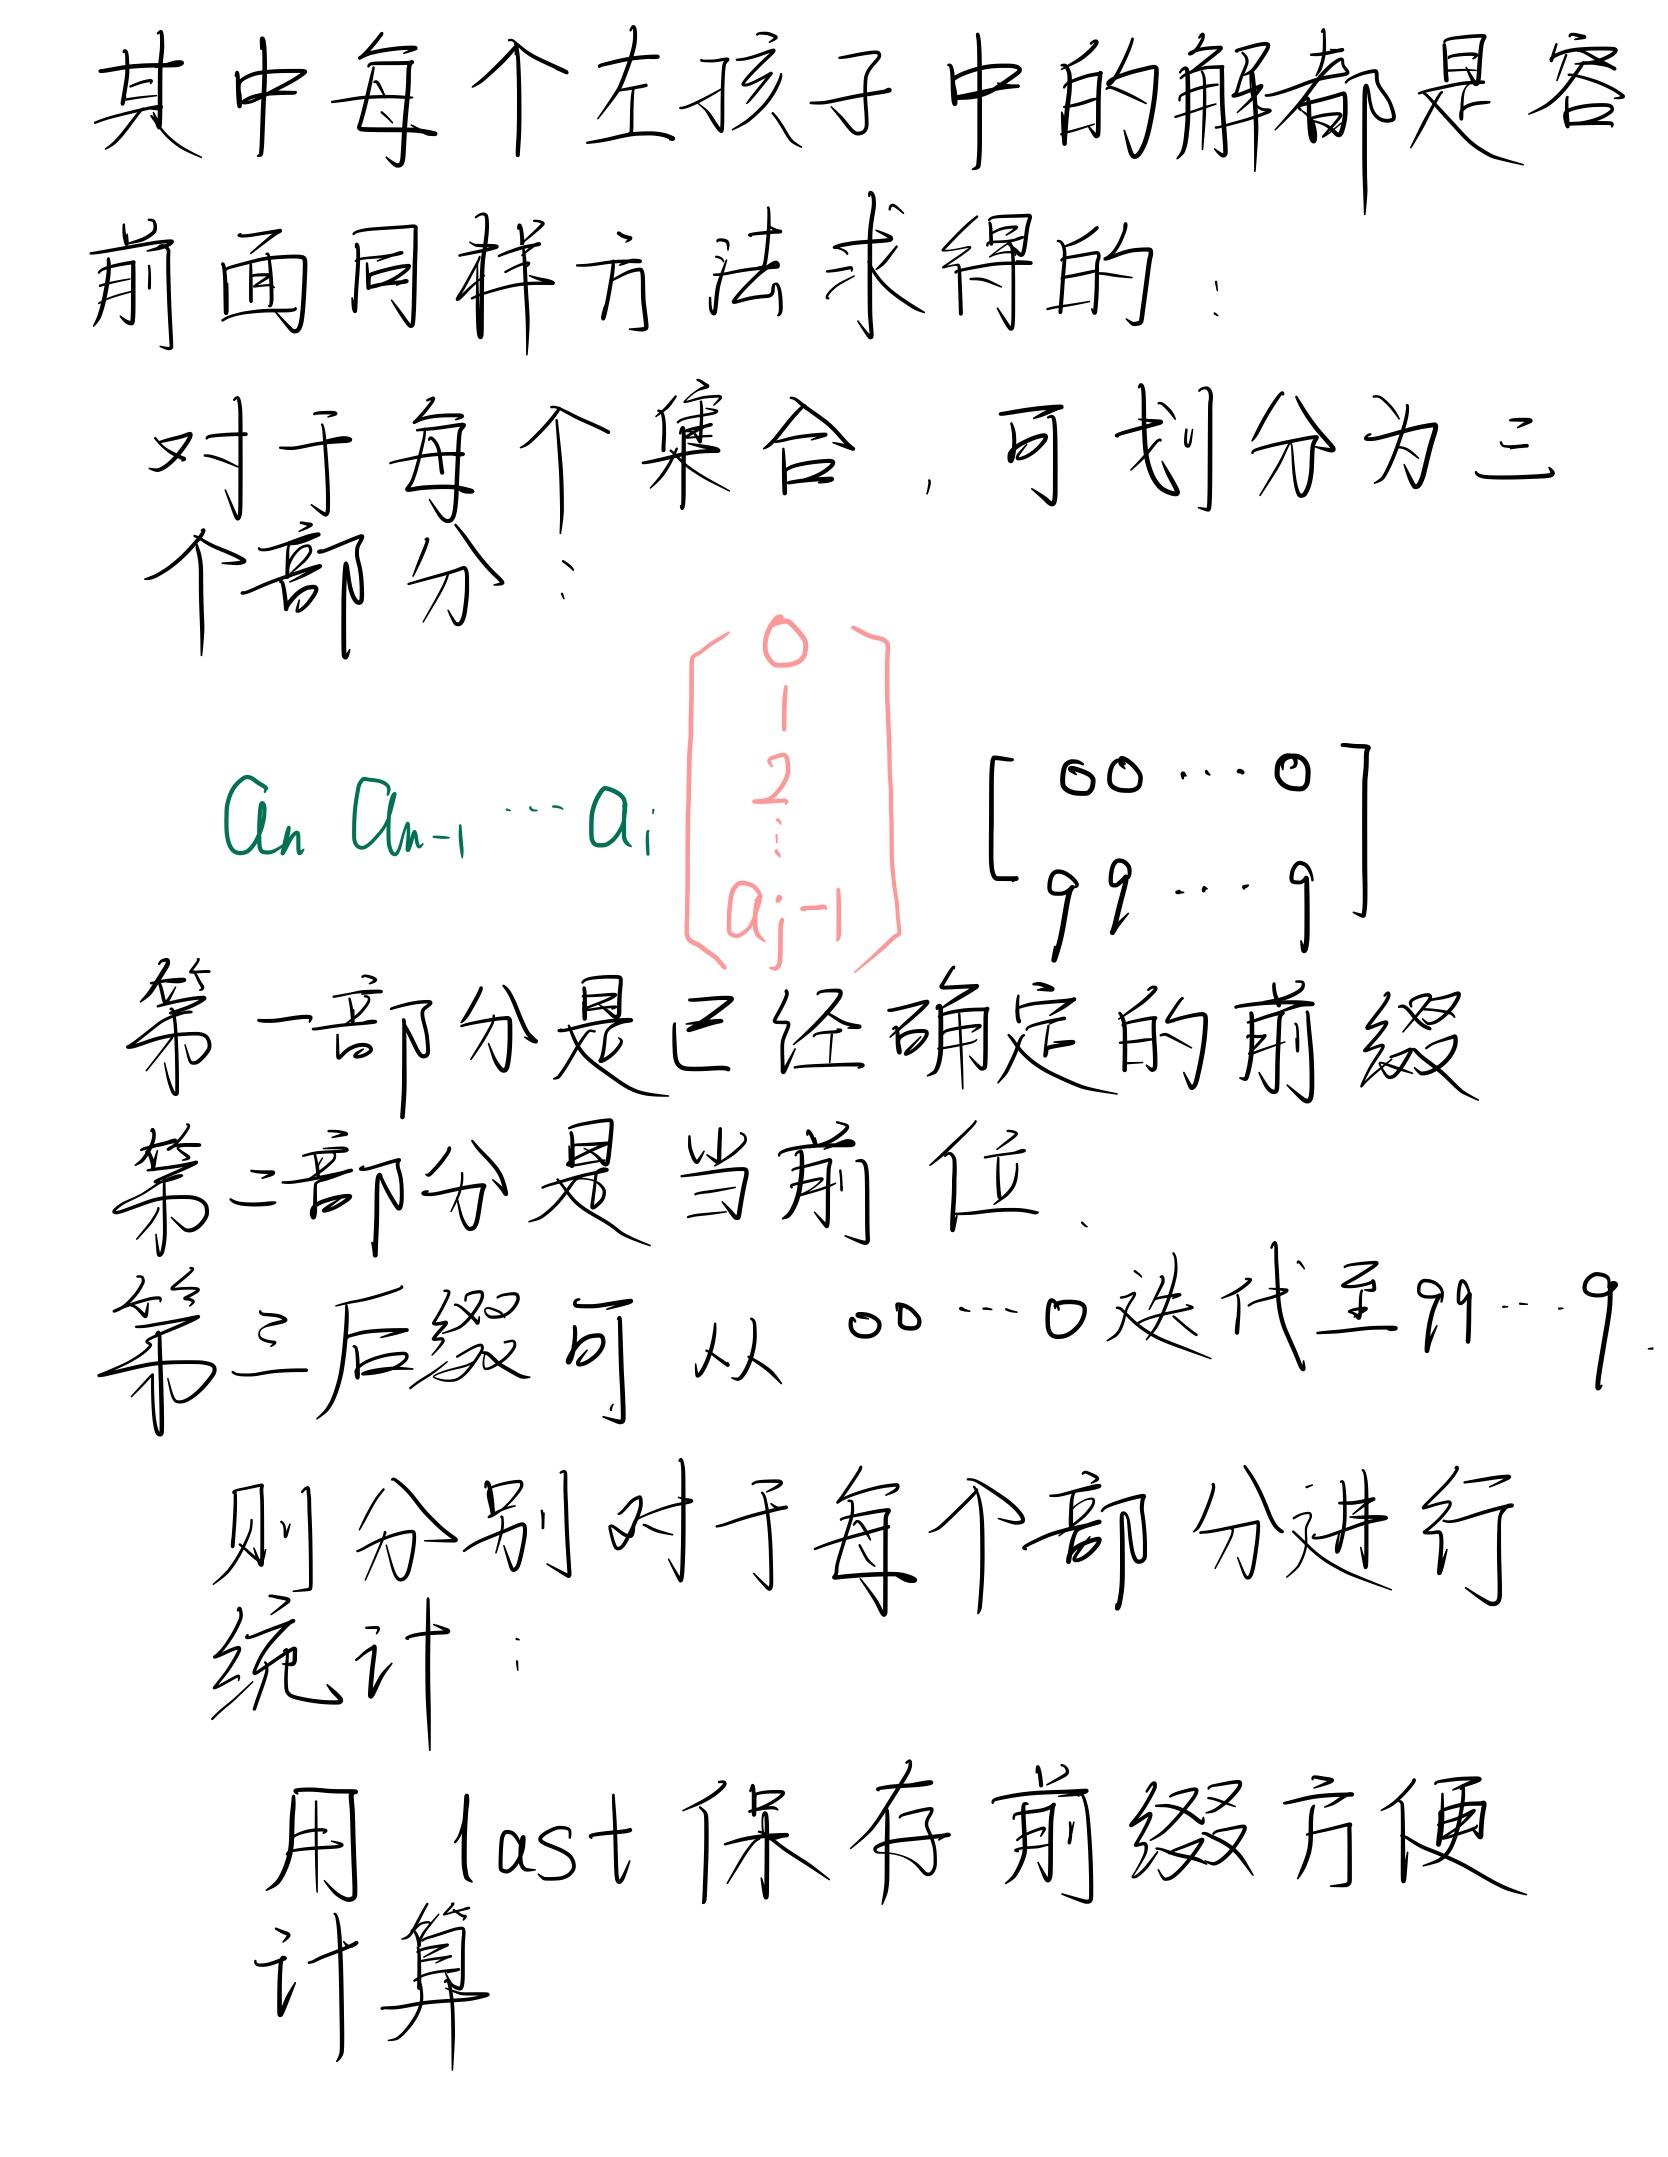 其中每个左孩子中的解都是容
前面同样方法求得的:
对于每个集合,可划分为三
个部分:
aₙ aₙ₋₁ ⋯ aᵢ [0 1 2 ⋮ aⱼ-1] [00⋯0 99⋯9]
第一部分是已经确定的前缀
第二部分是当前位.
第三后缀可从00⋯0迭代至99⋯9.
则分别对于每个部分进行
统计:
用last保存前缀方便
计算